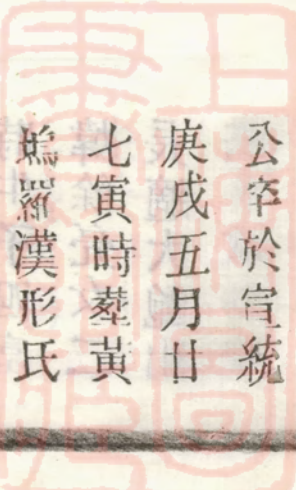 公卒於宣統
庚戌五月廿
七寅時塟黄
鴆羅漢形氏